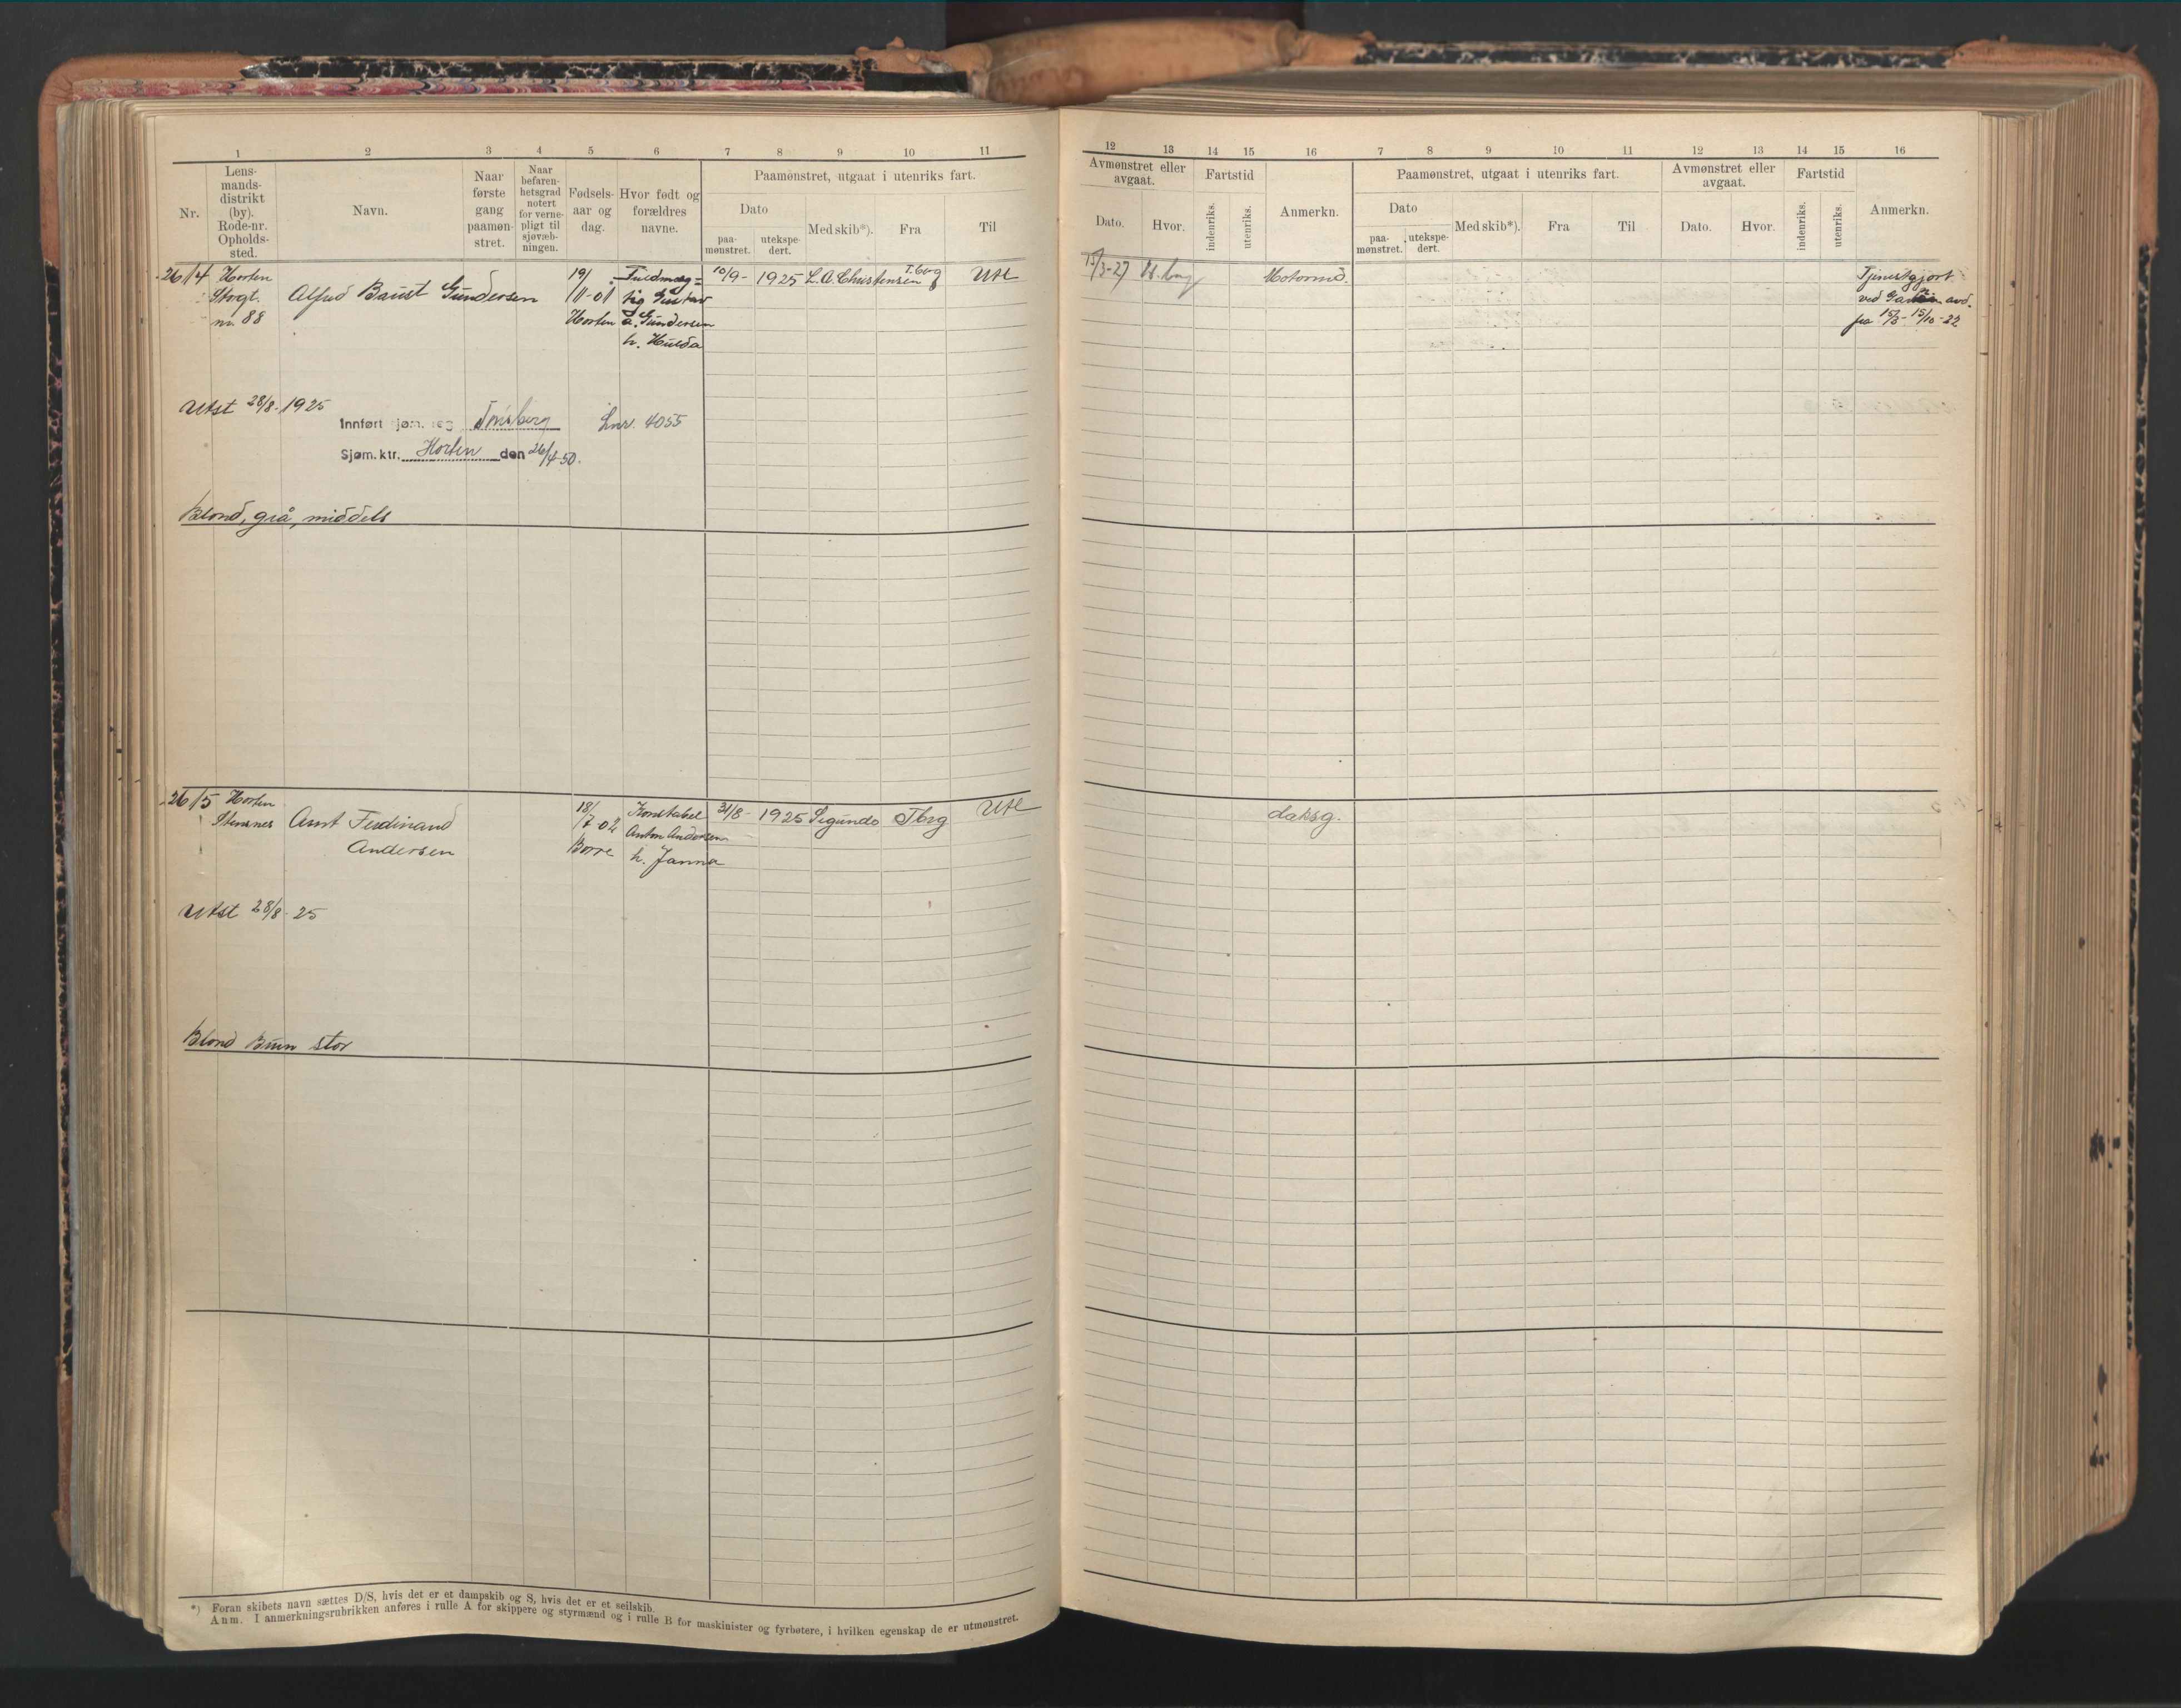 1 2 3 4 5 6 7 8 9 10 11
Nr.
Lens-
mands-
distrikt
(by).
Rode-nr.
Opholds-
sted.
Navn.
Naar
første
gang
paamøn-
stret.
Naar
befaren-
hetsgrad
notert
for verne-
pligt til
sjøvæb-
ningen.
Fødsels-
aar og
dag.
Hvor født og
forældres
navne.
Paamønstret, utgaat i utenriks fart.
Dato
paa-
mønstret.
utekspe-
dert.
Med skib*).
Fra
Til
2614 Horten
Storgt.
nr. 88
Alfred Gundersen
19/
11-01
Horten
Fuldmæg=
tig Gustav
a. Gundersen
h. Hulda
10/9- 1925 L. A. Christensen T.berg Utl
Utst 28/8. 1925
Innført sjøm. reg. Tønsberg Lnr. 4055
Sjøm. ktr. Horten den 26/4-50.
Blond, grå, middels
2615 Horten
Stensnes
Arnt Ferdinand
Andersen
18/
7-02
Borre
Konstabel
Anton Andersen
h. Janna
31/8- 1925 Segundo Tbrg Utl
Utst 28/8- 25
Blond Brun stor
*) Foran skibets navn sættes D/S, hvis det er et dampskib og S, hvis det er et seilskib.
Anm. I anmerkningsrubrikken anføres i rulle A for skippere og styrmænd og i rulle B for maskinister og fyrbøtere, i hvilken egenskap de er utmønstret.
12 13 14 15 16 7 8 9 10 11 12 13 14 15 16
Avmønstret eller
avgaat.
Dato.
Hvor.
Fartstid
indenriks.
utenriks.
Anmerkn.
Paamønstret, utgaat i utenriks fart.
Dato
paa-
mønstret.
utekspe-
dert.
Med skib*).
Fra
Til
Avmønstret eller
avgaat.
Dato.
Hvor.
Fartstid
indenriks.
utenriks.
Anmerkn.
15/3-27 Motormd.
Tjenestgjort
ved avd.
fra 15/3 - 15/10-22